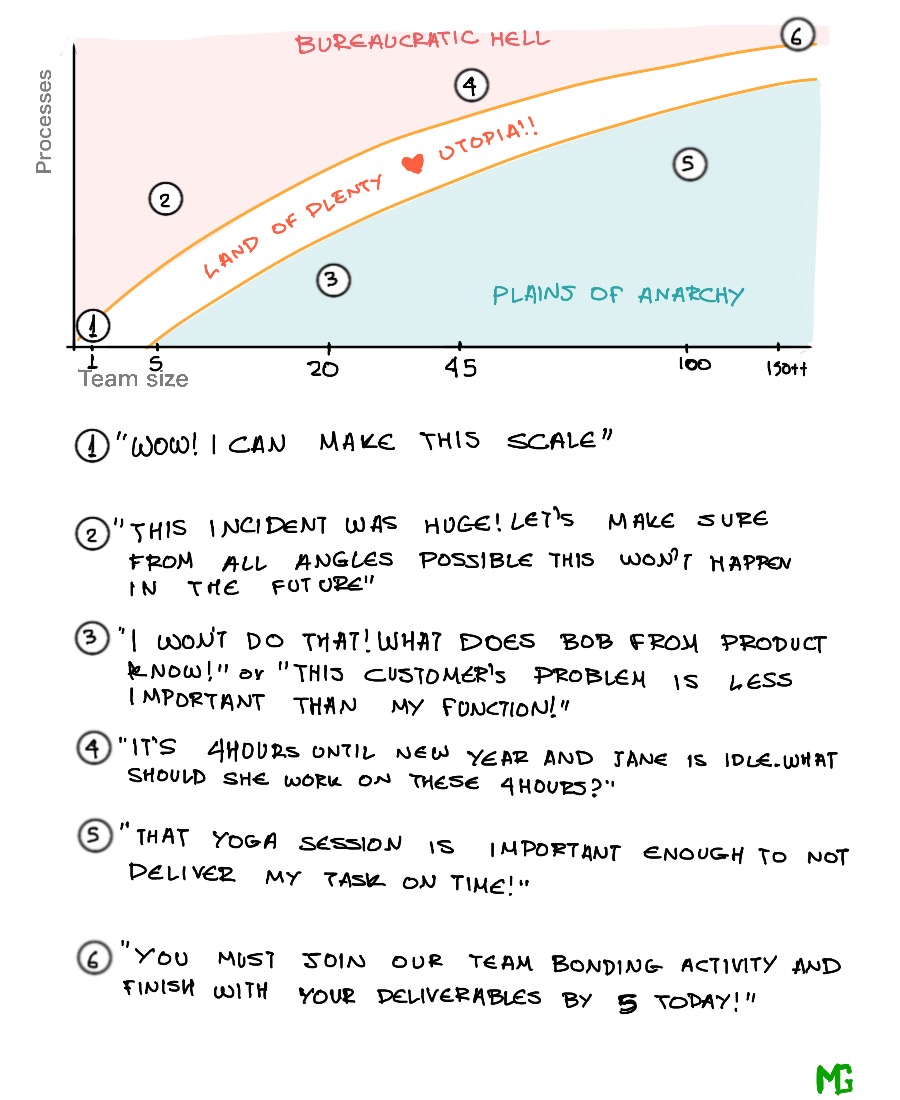 BUREAUCRATIC HELL
6
4
Processes
LAND OF PLENTY ♥ UTOPIA!!
5
2
3
PLAINS OF ANARCHY
1
1 5 20 45 100 150++
Team size
1 "WOW! I CAN MAKE THIS SCALE"
2 "THIS INCIDENT WAS HUGE! LET'S MAKE SURE
FROM ALL ANGLES POSSIBLE THIS WON'T HAPPEN
IN THE FUTURE"
3 "I WON'T DO THAT! WHAT DOES BOB FROM PRODUCT
KNOW!" or "THIS CUSTOMER'S PROBLEM IS LESS
IMPORTANT THAN MY FUNCTION!"
4 "IT'S 4HOURS UNTIL NEW YEAR AND JANE IS IDLE. WHAT
SHOULD SHE WORK ON THESE 4HOURS?"
5 "THAT YOGA SESSION IS IMPORTANT ENOUGH TO NOT
DELIVER MY TASK ON TIME!"
6 "YOU MUST JOIN OUR TEAM BONDING ACTIVITY AND
FINISH WITH YOUR DELIVERABLES BY 5 TODAY!"
MG